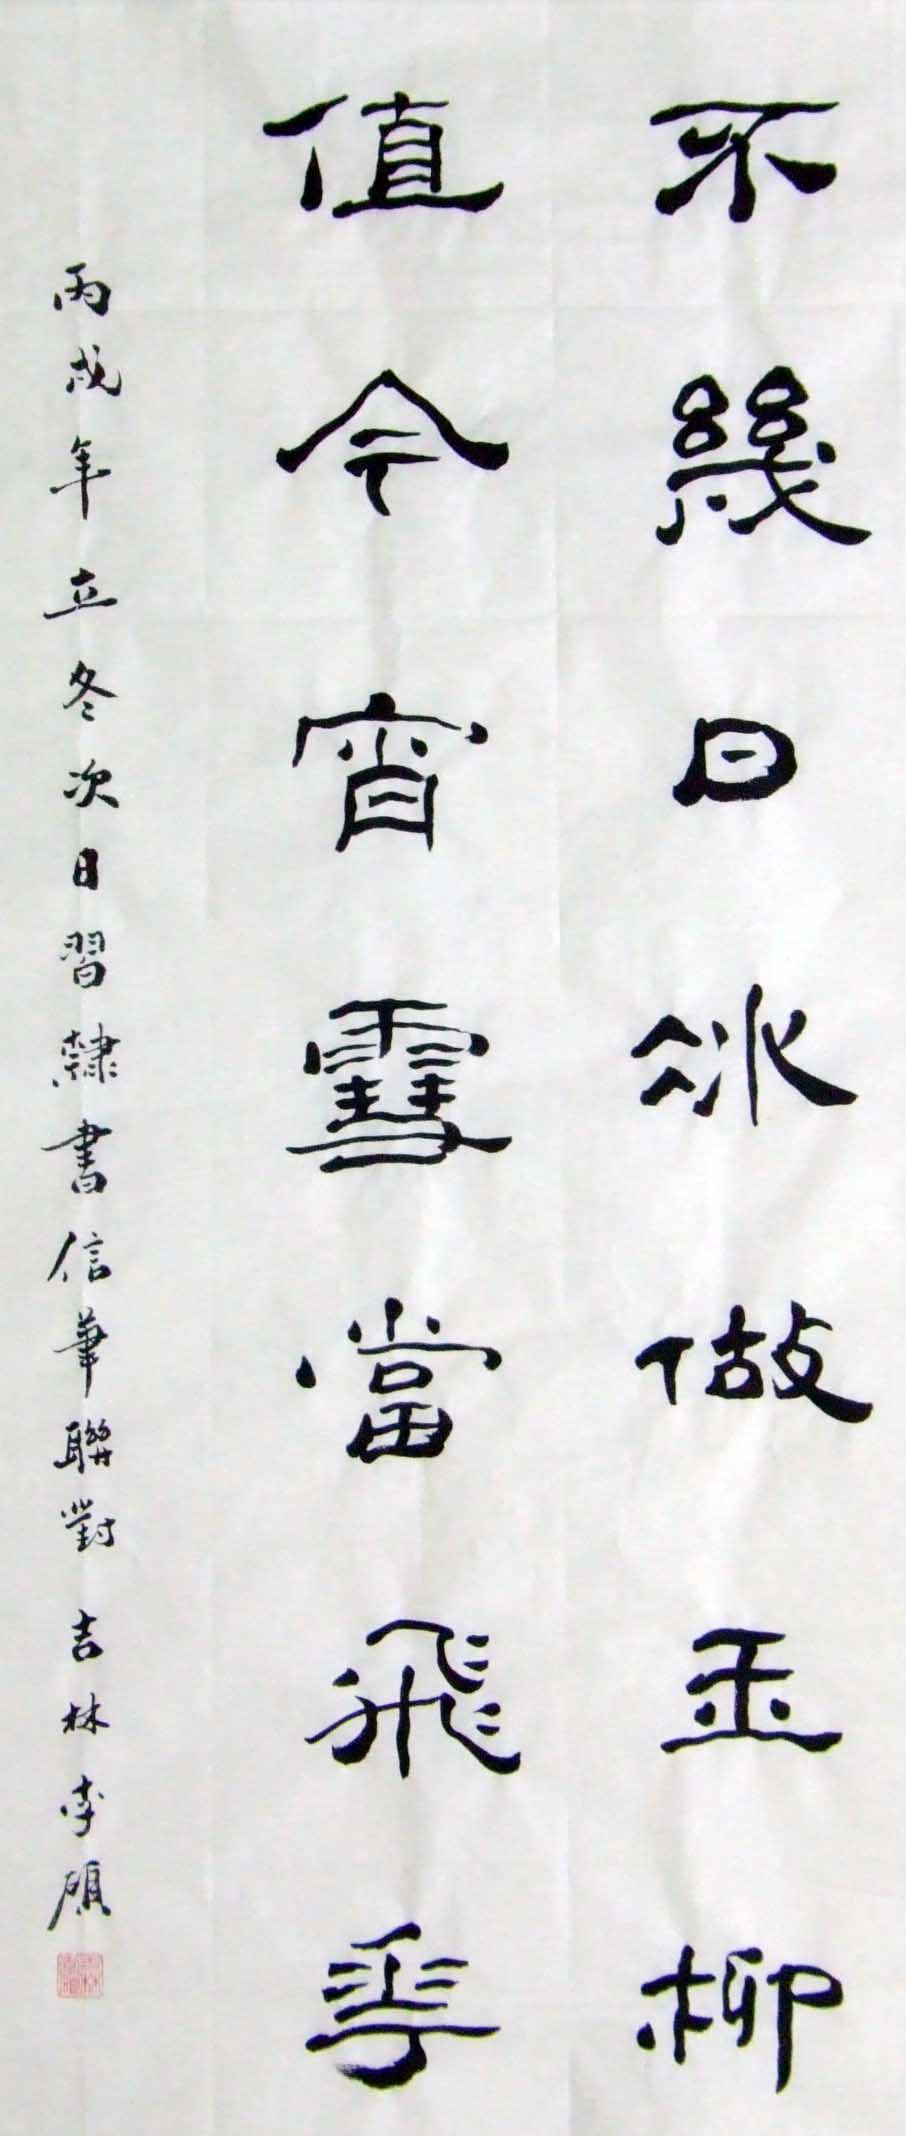 不幾日冰做玉柳
值今宵雪當飛華
丙戌年立冬次日習隸書信華聯對 吉林李碩